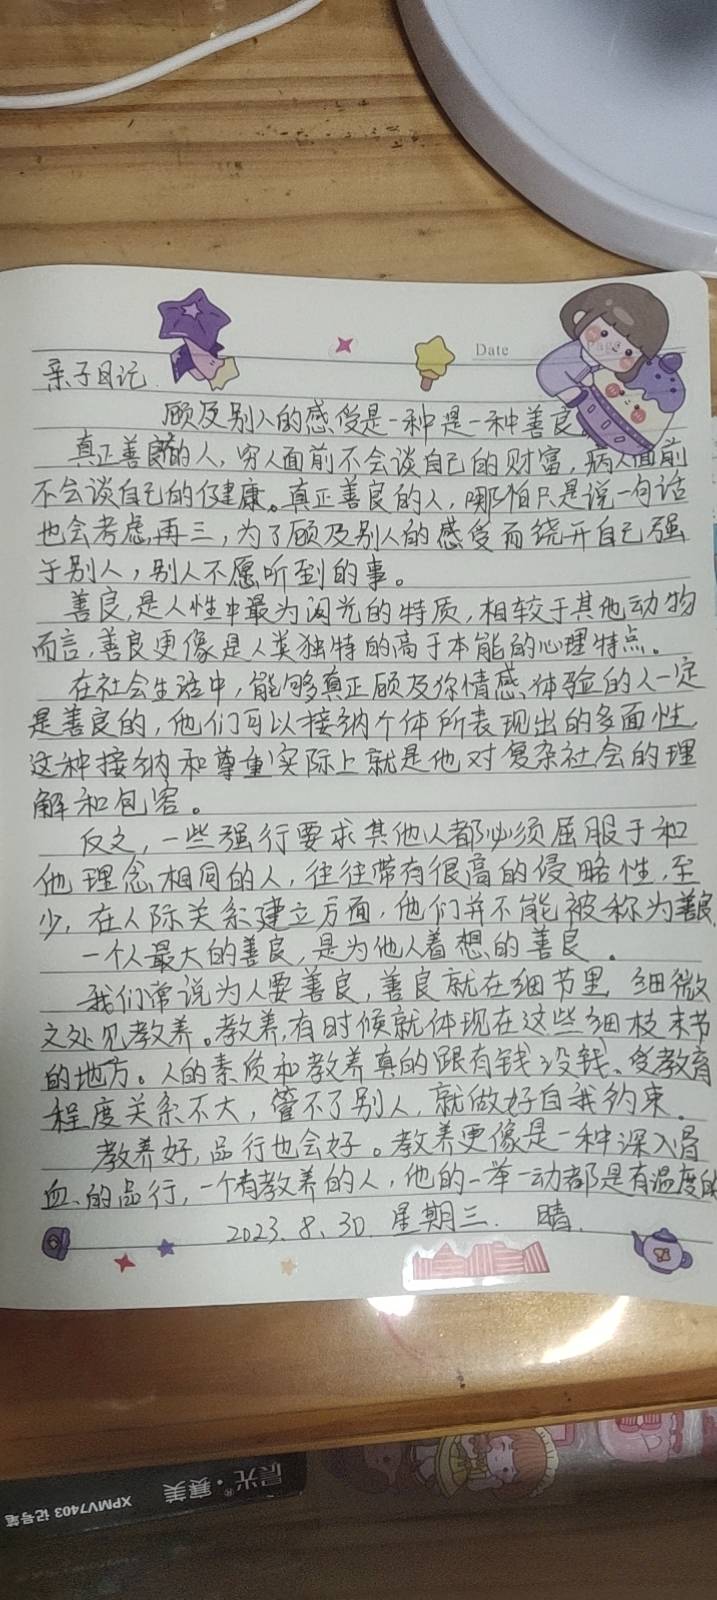 Date
亲子日记.
顾及别人的感受是一种是一种善良。
真正善良的人，穷人面前不会谈自己的财富，病人面前
不会谈自己的健康。真正善良的人，哪怕只是说一句话
也会考虑再三，为了顾及别人的感受而绕开自己强
于别人，别人不愿听到的事。
善良，是人性中最为闪光的特质，相较于其他动物
而言，善良更像是人类独特的高于本能的心理特点。
在社会生活中，能够真正顾及你情感、体验的人一定
是善良的，他们可以接纳个体所表现出的多面性，
这种接纳和尊重实际上就是他对复杂社会的理
解和包容。
反之，一些强行要求其他人都必须屈服于和
他理念相同的人，往往带有很高的侵略性，至
少，在人际关系建立方面，他们并不能被称为善良
一个人最大的善良，是为他人着想的善良。
我们常说为人要善良，善良就在细节里，细微
之处见教养。教养，有时候就体现在这些细枝末节
的地方。人的素质和教养真的跟有钱没钱、受教育
程度关系不大，管不了别人，就做好自我约束。
教养好，品行也会好。教养更像是一种深入骨
血的品行，一个有教养的人，他的一举一动都是有温度的
2023.8.30. 星期三. 晴.
晨光®·赛美 XPMV7403 记号笔